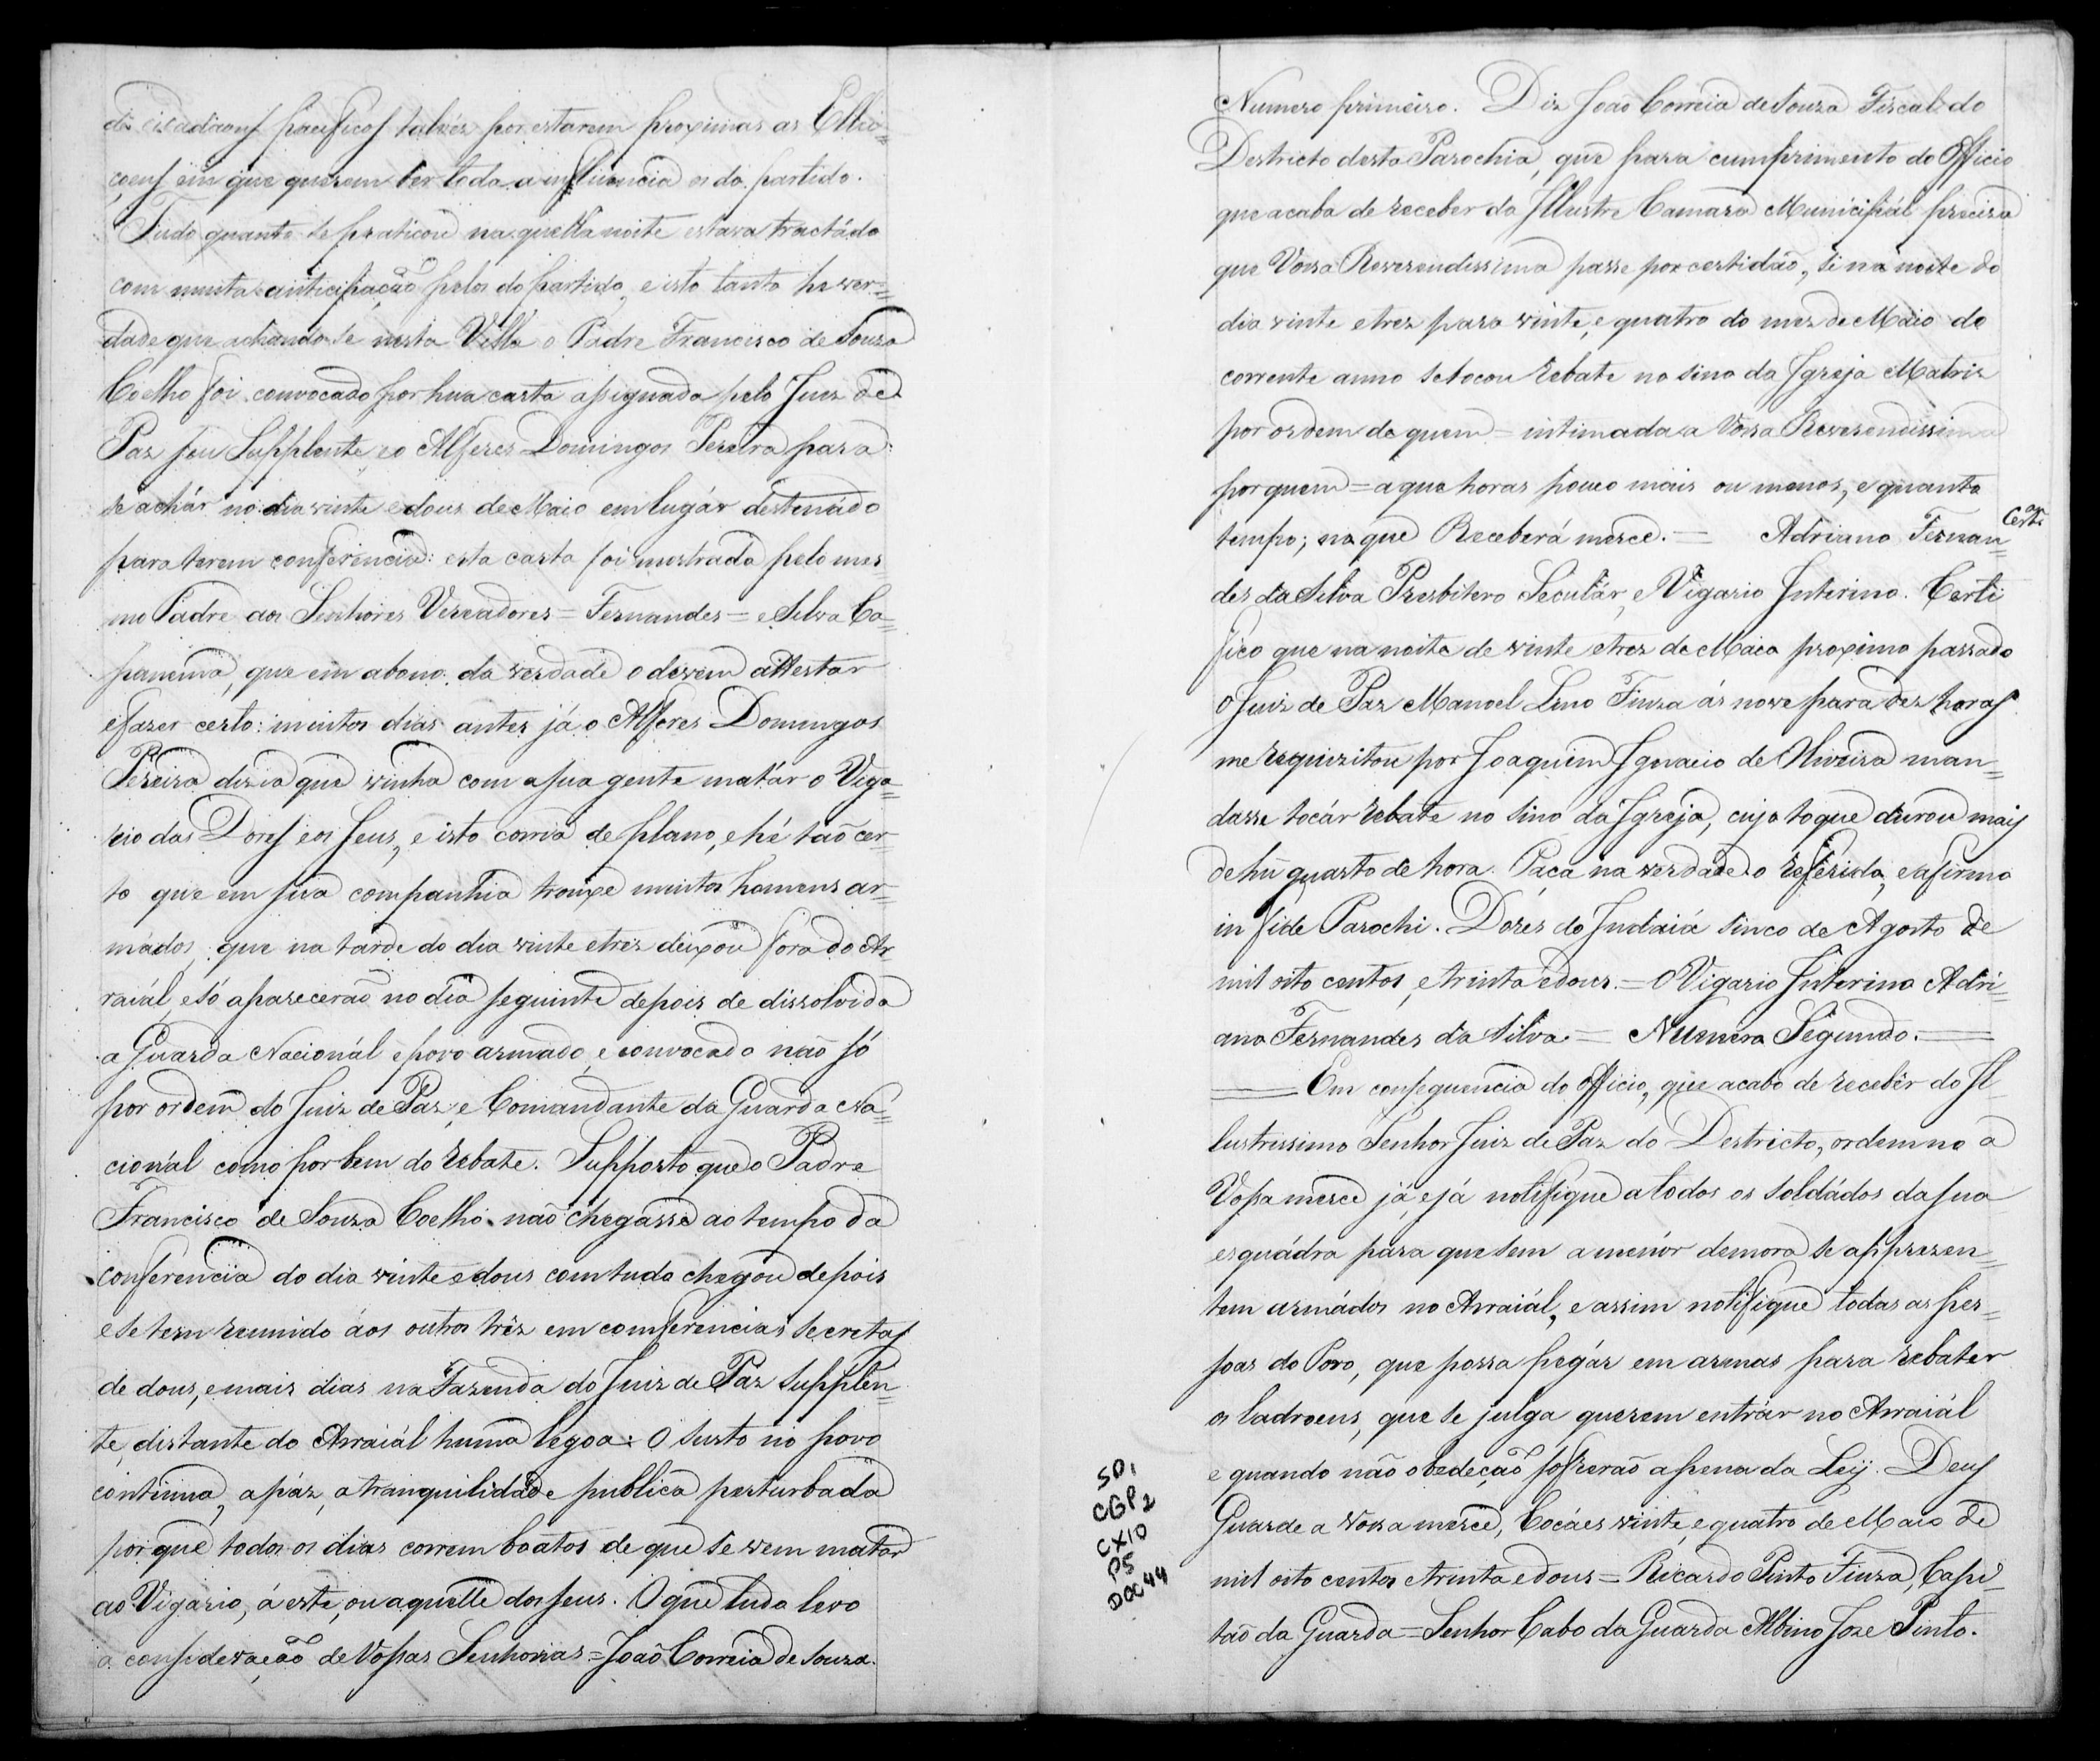 dos cidadaons pacificos talvéz por estarem proximas as Ellei=
çoens em que querem ter toda a influencia os do partido.
Tudo quanto se praticou naquella noite estava tractádo
com muita anticipação pelos do partido, e isto tanto he ver=
dade que achando-se nesta Villa o Padre Francisco de Souza
Coelho foi convocado por hua carta assignada pelo Juiz de
Paz seu Supplente, e o Alferes Domingos Pereira para
se achár no dia vinte e dous de Maio em lugár destinádo
para terem conferencia: esta carta foi mostrada pelo mes
mo Padre aos Senhores Vereadores = Fernandes = e Silva Ca=
panema, que em abono da verdade o devem attestar
e fazer certo: muitos dias antes já o Alferes Domingos
Pereira dizia que vinha com a sua gente matár o Viga=
rio das Dores e os seus, e isto corria de plano, e hé tão cer=
to que em sua companhia trouxe muitos homens ar=
mádos, que na tarde do dia vinte e trez deixou fóra do Ar
raiál, e só aparecerão no dia seguinte depois de dissolvida
a Guarda Nacionál e povo armado, e convocado não só
por ordem do Juiz de Paz, e Comandante da Guarda Na=
cionál como por bem do rebate. Supposto que o Padre
Francisco de Souza Coelho não chegasse ao tempo da
conferencia do dia vinte e dous com tudo chegou depois
e se tem reunido áos outros trêz em comferencias secretas
de dous, e mais dias na Fazenda do Juiz de Paz Supplen=
te, distante do Arraiál huma legoa: O susto no povo
continua, a páz, a tranquilidade publica perturbada
por que todos os dias correm boatos de que se vem matar
ao Vigario, á este, ou aquelle dos seus. O que tudo levo
á consideração de Vossas Senhorias = João Correia de Souza.
Numero primeiro. Diz João Correia de Souza Fiscal do
Destricto desta Parochia, que para cumprimento do Officio
que acaba de receber da Illustre Camara Municipál precisa
que Vossa Reverendissima passe por certidão, si na noite do
dia vinte e trez para vinte, e quatro do mez de Maio do
corrente anno se tocou rebate no sino da Igreja Matriz
por ordem de quem = intimada a Vossa Reverendissima
por quem = a que horas pouco mais ou menos, e quanto
tempo; no que Receberá merce. = Adriano Fernan=
Certam
des da Silva Presbitero Seculár, e Vigario Interino. Certi
fico que na noite de vinte e trez de Maio proximo passado
o Juiz de Paz Manoel Lino Fiuza ás nove para dez horas
me requizitou por Joaquim Ignacio de Oliveira man=
dasse tocár rebate no sino da Igreja, cujo toque durou mais
de hũ quarto de hora. Paça na verdade o referido, e afirmo
in fide Parochi. Dores do Indaiá sinco de Agosto de
mil oito centos, e trinta e dous. = O Vigario Interino Adri=
ano Fernandes da Silva. = Numero Segundo. =
= Em consequencia do officio, que acabo de recebêr do Il
lustrissimo Senhor Juiz de Paz do Destricto, ordenno a
Vossa merce já, e já notifique a todos os soldádos da sua
esquádra para que sem a menór demora se apprezen=
tem armádos no Arraiál, e assim notifique todas as pes=
soas do Povo, que possa pegár em armas para rebater
os ladroens, que se julga querem entrár no Arraiál
e quando não obedeção sofrerão a pena da Ley. Deus
Guarde a Vossa merce, Cocáes vinte, e quatro de Maio de
mil oito centos e trinta e dous = Ricardo Pinto Fiuza, Capi=
tão da Guarda = Senhor Cabo da Guarda Albino Joze Pinto.
SP1
CGP2
CX10
P5
DOC 44